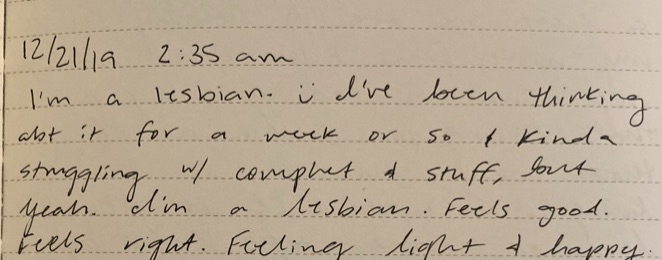 12/21/19 2:35 am
I'm a lesbian. ü I've been thinking
abt it for a week or so & kinda
struggling w/ comphet & stuff, but
yeah. I'm a lesbian. Feels good.
Feels right. Feeling light & happy.